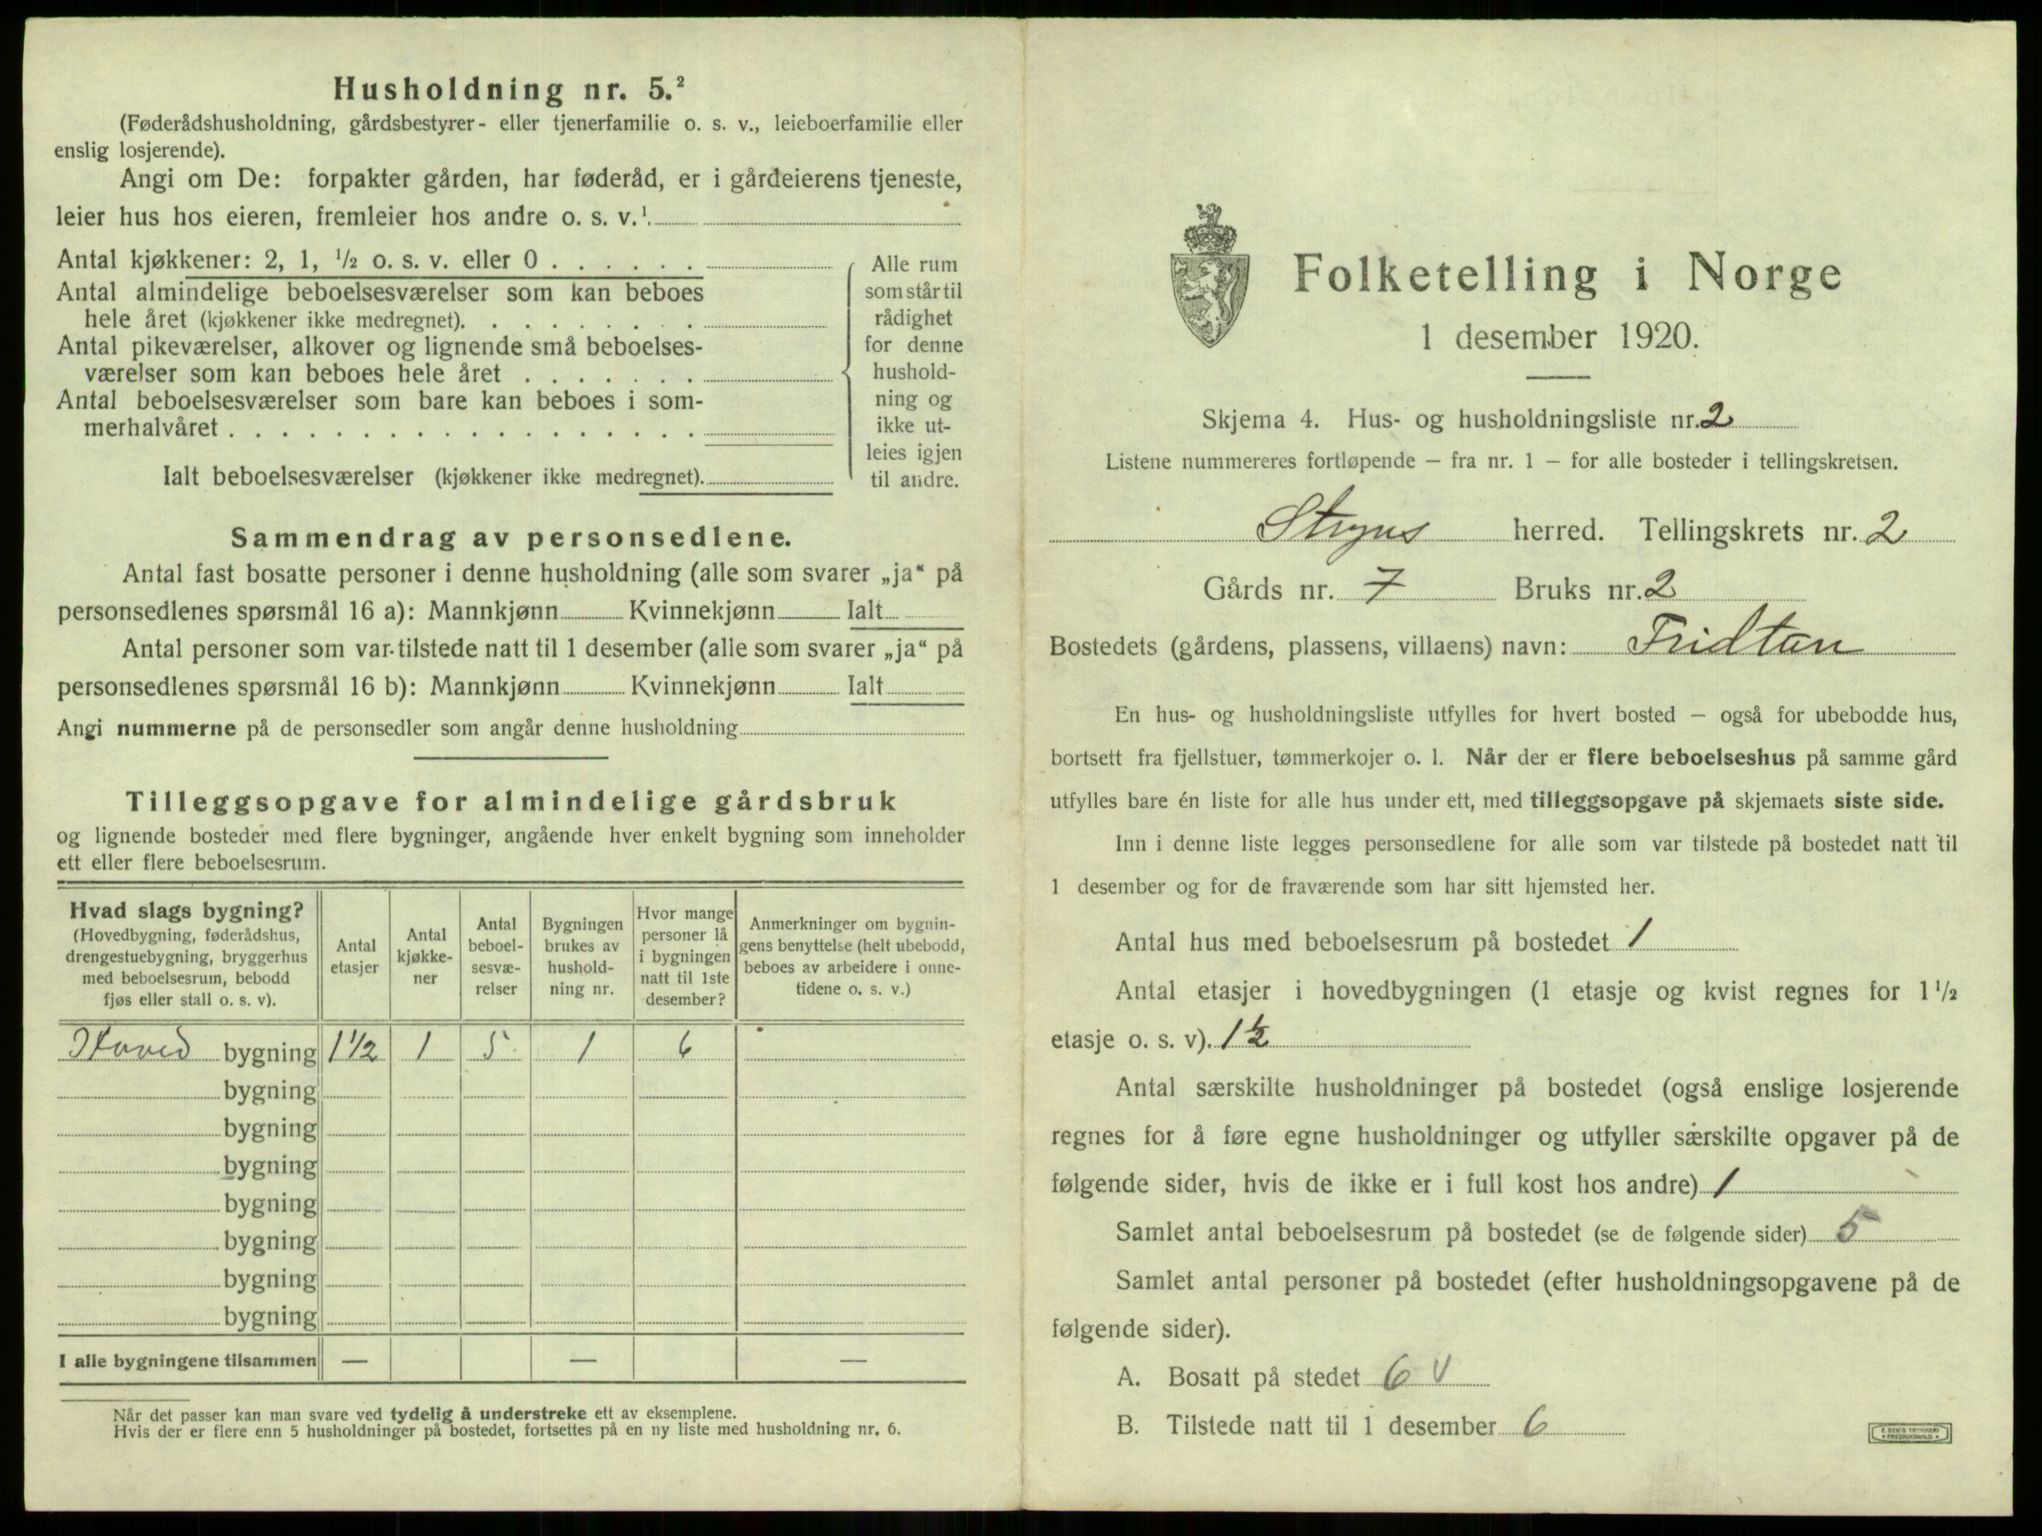 Husholdning nr. 5.²
(Føderådshusholdning, gårdsbestyrer- eller tjenerfamilie o. s. v., leieboerfamilie eller
enslig losjerende).
Angi om De: forpakter gården, har føderåd, er i gårdeierens tjeneste,
leier hus hos eieren, fremleier hos andre o. s. v.¹
Antal kjøkkener: 2, 1, ½ o. s. v. eller 0
Antal almindelige beboelsesværelser som kan beboes
hele året (kjøkkener ikke medregnet).
Antal pikeværelser, alkover og lignende små beboelses-
værelser som kan beboes hele året
Antal beboelsesværelser som bare kan beboes i som-
merhalvåret
Ialt beboelsesværelser (kjøkkener ikke medregnet).
Alle rum
som står til
rådighet
for denne
hushold-
ning og
ikke ut-
leies igjen
til andre.
Sammendrag av personsedlene.
Antal fast bosatte personer i denne husholdning (alle som svarer „ja“ på
personsedlenes spørsmål 16 a): Mannkjønn Kvinnekjønn Ialt
Antal personer som var tilstede natt til 1 desember (alle som svarer „ja“ på
personsedlenes spørsmål 16 b): Mannkjønn Kvinnekjønn Ialt
Angi nummerne på de personsedler som angår denne husholdning
Tilleggsopgave for almindelige gårdsbruk
og lignende bosteder med flere bygninger, angående hver enkelt bygning som inneholder
ett eller flere beboelsesrum.
Hvad slags bygning?
(Hovedbygning, føderådshus,
drengestuebygning, bryggerhus
med beboelsesrum, bebodd
fjøs eller stall o. s. v).
Antal
etasjer
Antal
kjøkke-
ner
Antal
beboel-
sesvæ-
relser
Bygningen
brukes av
hushold-
ning nr.
Hvor mange
personer lå
i bygningen
natt til 1ste
desember?
Anmerkninger om bygnin-
gens benyttelse (helt ubebodd,
beboes av arbeidere i onne-
tidene o. s. v.)
Hoved bygning 1½ 1 5 1 6
bygning
bygning
bygning
bygning
bygning
bygning
bygning
I alle bygningene tilsammen — — —
Når det passer kan man svare ved tydelig å understreke ett av eksemplene.
Hvis der er flere enn 5 husholdninger på bostedet, fortsettes på en ny liste med husholdning nr. 6.
Folketelling i Norge
1 desember 1920.
Skjema 4. Hus- og husholdningsliste nr. 2
Listene nummereres fortløpende – fra nr. 1 – for alle bosteder i tellingskretsen.
Stryns herred. Tellingskrets nr. 2
Gårds nr. 7 Bruks nr. 2
Bostedets (gårdens, plassens, villaens) navn: Fridtun
En hus- og husholdningsliste utfylles for hvert bosted – også for ubebodde hus,
bortsett fra fjellstuer, tømmerkojer o. l. Når der er flere beboelseshus på samme gård
utfylles bare én liste for alle hus under ett, med tilleggsopgave på skjemaets siste side.
Inn i denne liste legges personsedlene for alle som var tilstede på bostedet natt til
1 desember og for de fraværende som har sitt hjemsted her.
Antal hus med beboelsesrum på bostedet 1
Antal etasjer i hovedbygningen (1 etasje og kvist regnes for 1½
etasje o. s. v). 1½
Antal særskilte husholdninger på bostedet (også enslige losjerende
regnes for å føre egne husholdninger og utfyller særskilte opgaver på de
følgende sider, hvis de ikke er i full kost hos andre) 1
Samlet antal beboelsesrum på bostedet (se de følgende sider) 5
Samlet antal personer på bostedet (efter husholdningsopgavene på de
følgende sider).
A. Bosatt på stedet 6 v
B. Tilstede natt til 1 desember 6